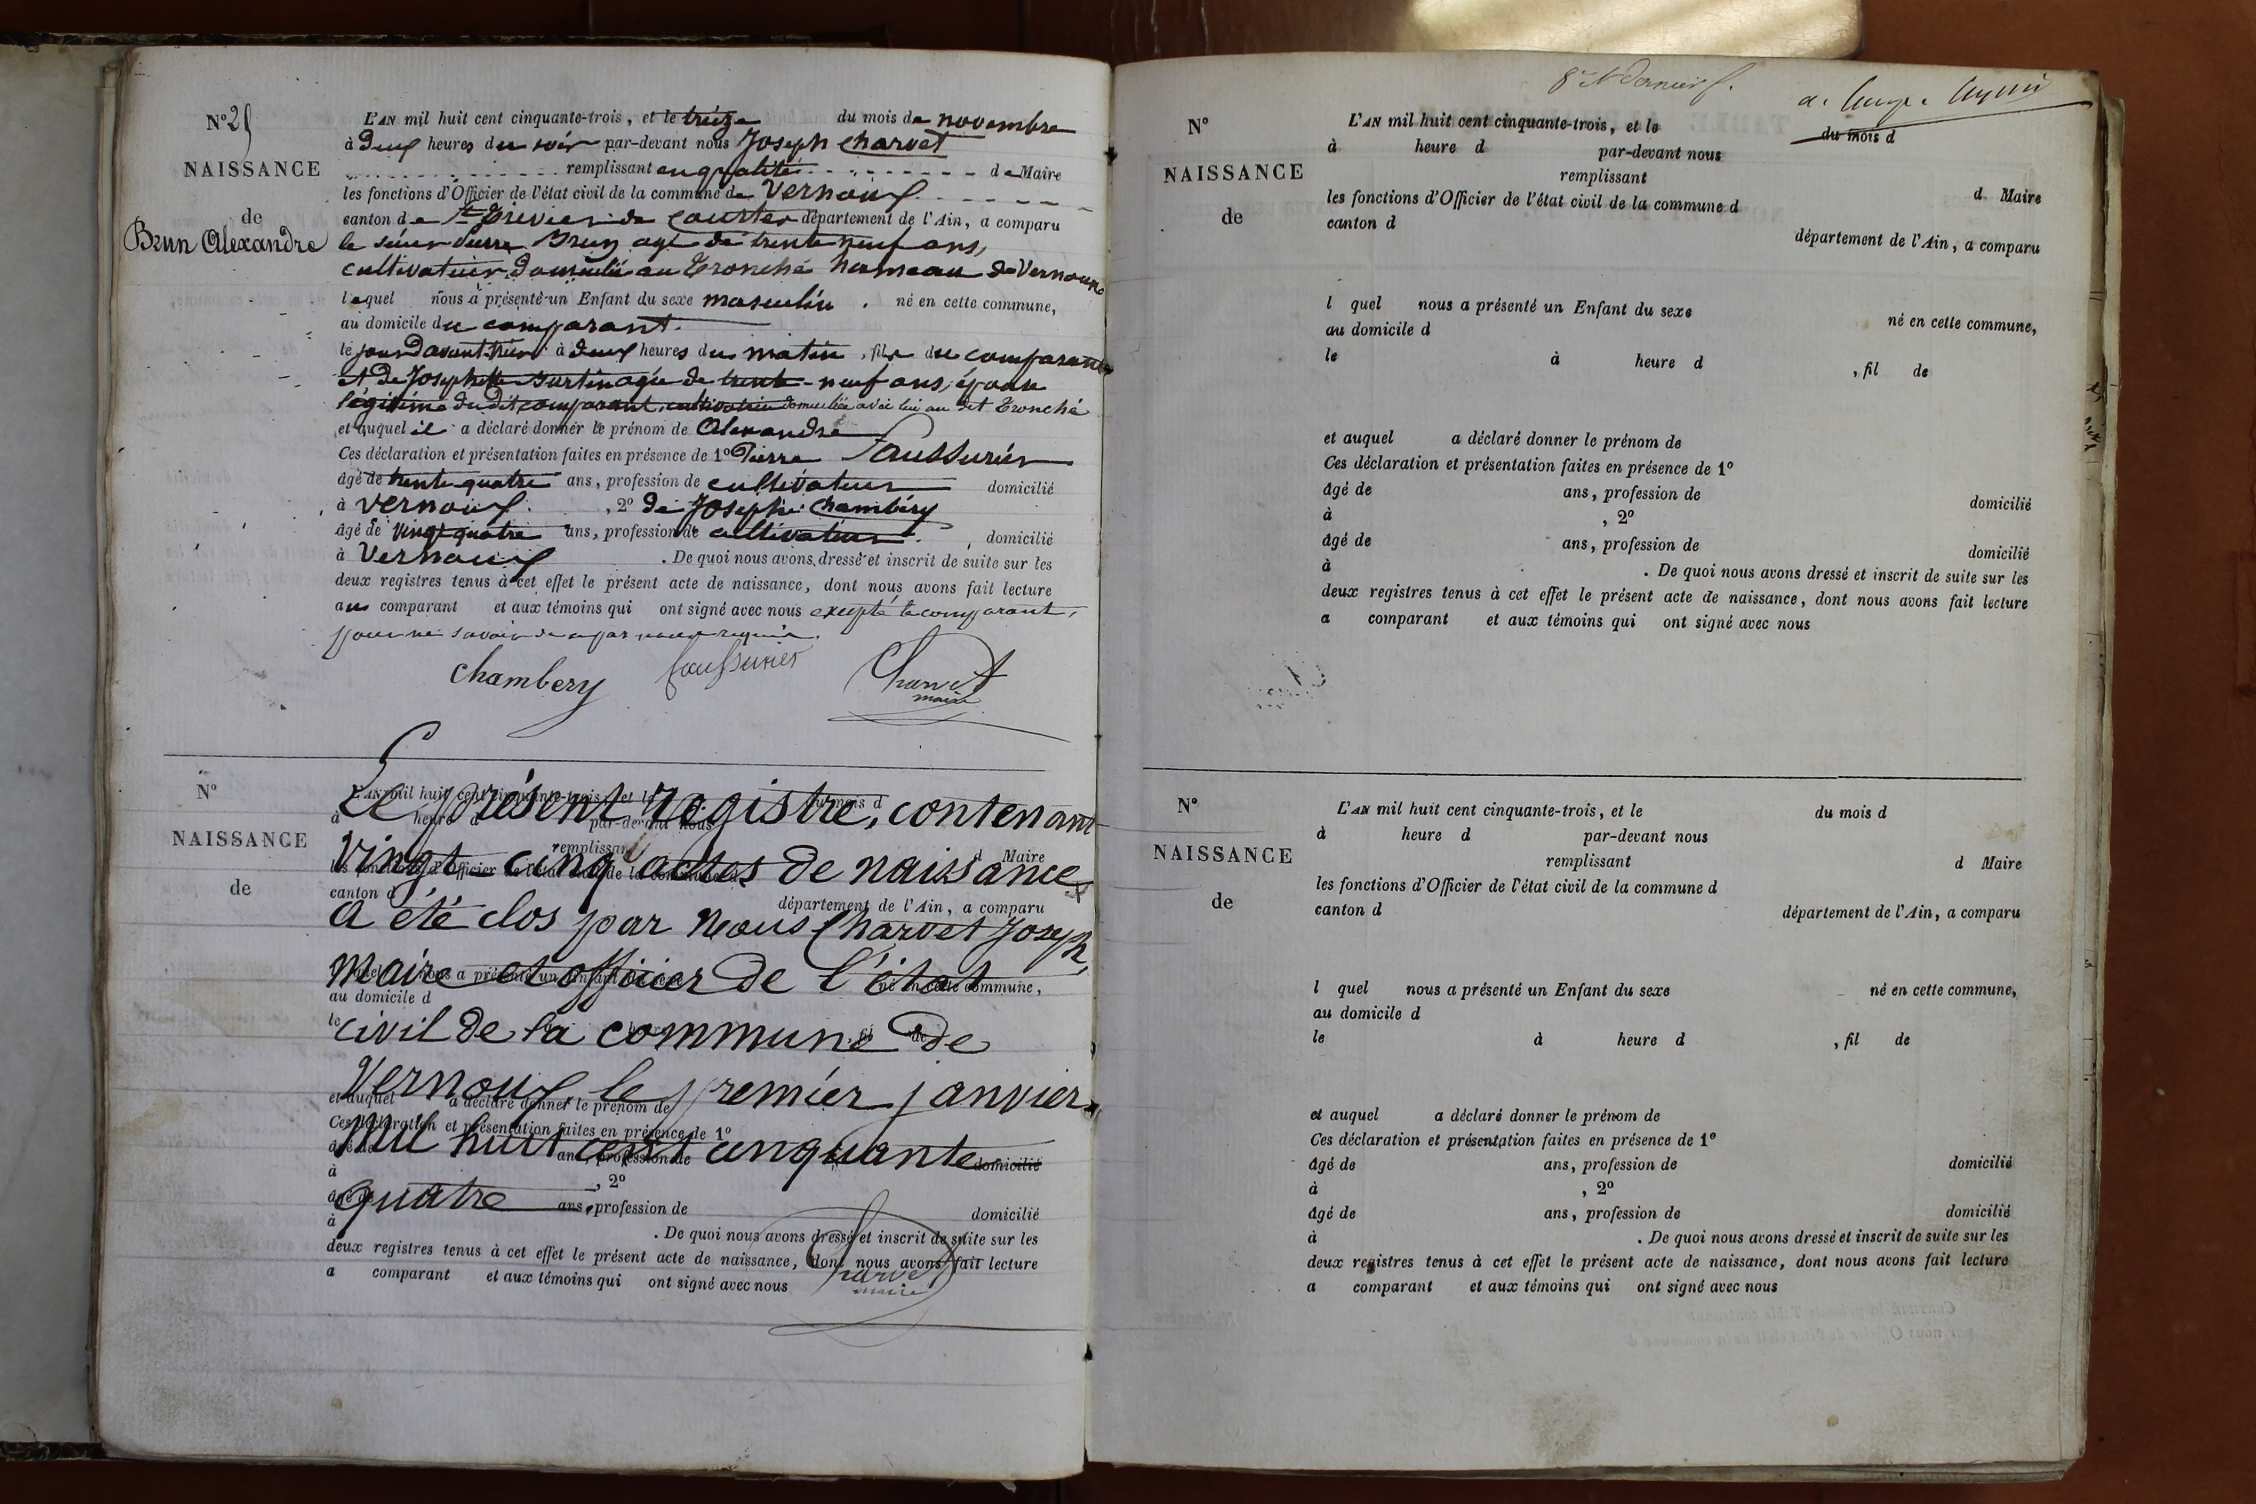 N° 25
NAISSANCE
de
Brun Alexandre
L'AN mil huit cent cinquante-trois, et le treize du mois de novembre
à Deux heures du soir par-devant nous Joseph Charvet
remplissant en qualité de Maire
les fonctions d'Officier de l'état civil de la commune de Vernoux
canton de St Trivier de Courtes département de l'Ain, a comparu
le sieur Pierre Brun agé de trente neuf ans,
cultivateur domicilié au Tronché hameau de Vernoux
lequel nous a présenté un Enfant du sexe masculin . né en cette commune,
au domicile du comparant.
le jour d'avant hier à deux heures du matin, fils du comparant
et de Josephte Burtin agée de trente-neuf ans, épouse
légitime du dit comparant, cultivatrice domiciliée avec lui au dit Tronché
et auquel il a déclaré donner le prénom de Alexandre
Ces déclaration et présentation faites en présence de 1° Pierre Saussurier
âgé de trente quatre ans, profession de cultivateur domicilié
à Vernoux , 2° de Joseph Chambéry
âgé de vingt quatre ans, profession de cultivateur , domicilié
à Vernoux . De quoi nous avons dressé et inscrit de suite sur les
deux registres tenus à cet effet le présent acte de naissance, dont nous avons fait lecture
au comparant et aux témoins qui ont signé avec nous excepté le comparant,
pour ne savoir de ce par nous requis.
Chambery Saussurier Charvet
maire
N°
NAISSANCE
de
L'AN mil huit cent cinquante-trois, et le du mois d
Le présent registre, contenant
à heure d par-devant nous
remplissant d Maire
vingt-cinq actes de naissance
les fonctions d'Officier de l'état civil de la commune d
canton d département de l'Ain, a comparu
a été clos par Nous Charvet Joseph,
Maire et officier de l'état
l quel nous a présenté un Enfant du sexe né en cette commune,
au domicile d
le à heure d , fil de
civil de la commune de
Vernoux le premier janvier
et auquel a déclaré donner le prénom de
Ces déclaration et présentation faites en présence de 1°
mil huit cent cinquante
âgé de ans, profession de domicilié
à , 2°
quatre
âgé de ans, profession de domicilié
à . De quoi nous avons dressé et inscrit de suite sur les
deux registres tenus à cet effet le présent acte de naissance, dont nous avons fait lecture
a comparant et aux témoins qui ont signé avec nous
Charvet
maire
8e et dernier f.
N°
NAISSANCE
de
L'AN mil huit cent cinquante-trois, et le du mois d
à heure d par-devant nous
remplissant d Maire
les fonctions d'Officier de l'état civil de la commune d
canton d département de l'Ain, a comparu
l quel nous a présenté un Enfant du sexe né en cette commune,
au domicile d
le à heure d , fil de
et auquel a déclaré donner le prénom de
Ces déclaration et présentation faites en présence de 1°
âgé de ans, profession de domicilié
à , 2°
âgé de ans, profession de domicilié
à . De quoi nous avons dressé et inscrit de suite sur les
deux registres tenus à cet effet le présent acte de naissance, dont nous avons fait lecture
a comparant et aux témoins qui ont signé avec nous
N°
NAISSANCE
de
L'AN mil huit cent cinquante-trois, et le du mois d
à heure d par-devant nous
remplissant d Maire
les fonctions d'Officier de l'état civil de la commune d
canton d département de l'Ain, a comparu
l quel nous a présenté un Enfant du sexe né en cette commune,
au domicile d
le à heure d , fil de
et auquel a déclaré donner le prénom de
Ces déclaration et présentation faites en présence de 1°
âgé de ans, profession de domicilié
à , 2°
âgé de ans, profession de domicilié
à . De quoi nous avons dressé et inscrit de suite sur les
deux registres tenus à cet effet le présent acte de naissance, dont nous avons fait lecture
a comparant et aux témoins qui ont signé avec nous